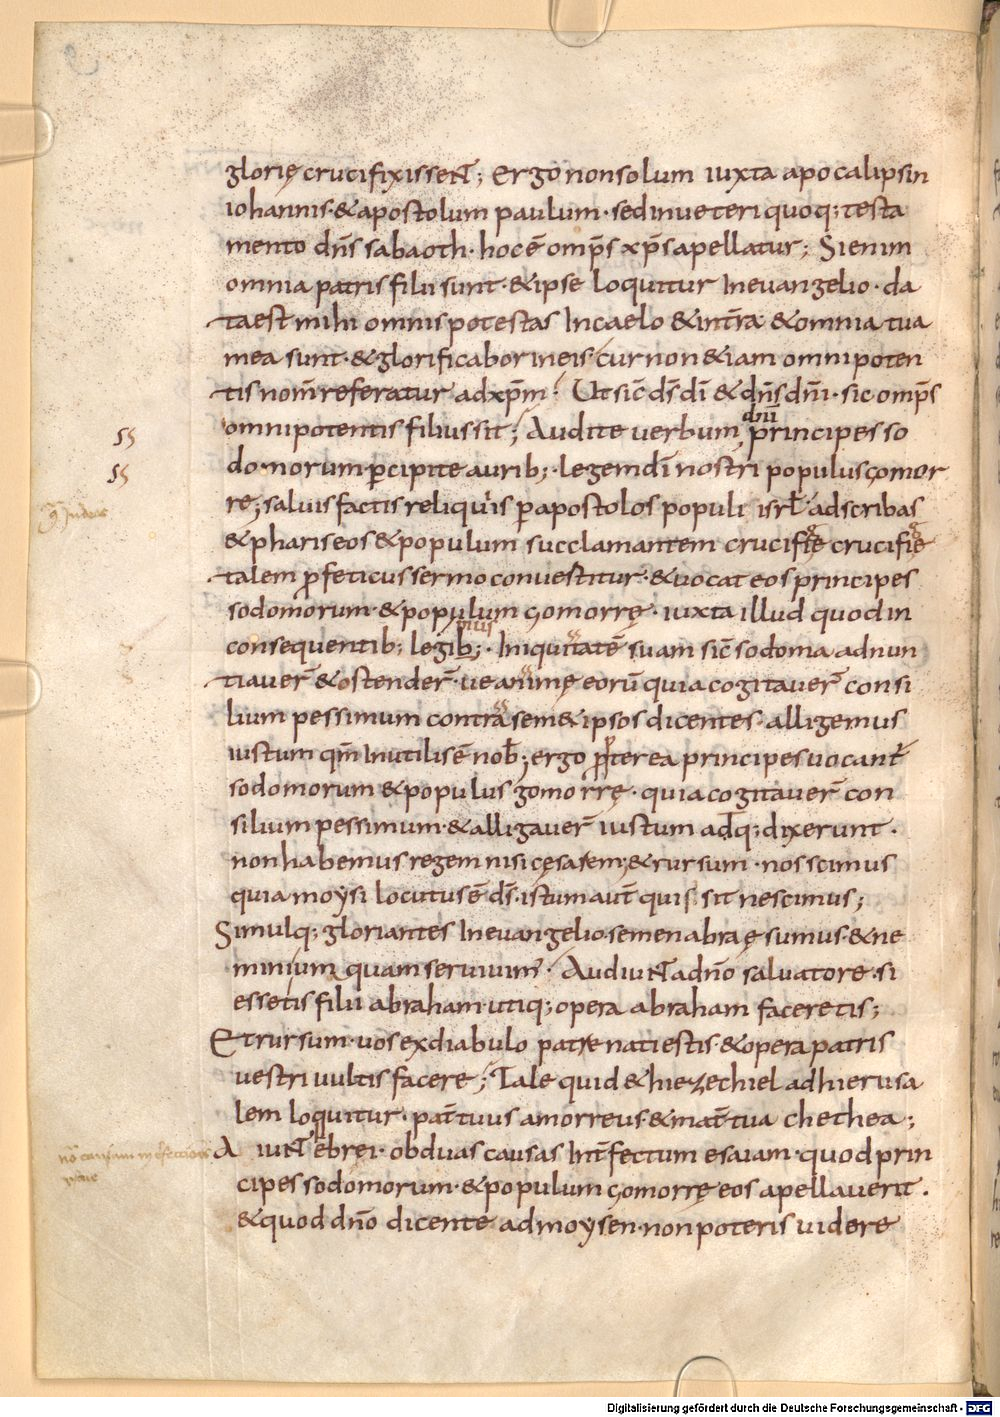 glorię crucifixissent; Ergo non solum iuxta apocalipsin
iohannis · & apostolum paulum · sed in ueteri quoq; testa
mento dn̄s sabaoth · hoc ē omp̄s xp̄s apellatur; Si enim
omnia patris filii sunt · & ipse loquitur In euangelio · da
ta est mihi omnis potestas In caelo & in tr̄a · & omnia tua
mea sunt · & glorificabor in eis · cur non & iam omnipoten
tis nom̄ referatur ad xp̄m? Ut sic̄ ds̄ dī & dn̄s dn̄i · sic omp̄s
omnipotentis filius sit; Audite uerbum dn̄i principes so
domorum ꝑcipite aurib; · legem dī nostri populus gomor
rę; saluis factis reliquiis ꝑ apostolos populi isrl̄ · ad scribas
& phariseos & populum succlamantem crucifige crucifige
talem ꝓfeticus sermo conuestitur · & uocat eos principes
sodomorum · & populum gomorrę · iuxta illud quod in
consequentib; legib; · Iniquitatē suam sic̄ sodoma adnun
tiauer̄ & ostender̄ · ue animę eorū quia cogitauer̄ consi
lium pessimum contra sem & ipsos dicentes · alligemus
iustum qm̄ Inutilis ē nob̄; ergo ꝓpterea principes uocant̄
sodomorum & populus gomorrę · quia cogitauer̄ con
silium pessimum · & alligauer̄ iustum adq; dixerunt ·
non habemus regem nisi cęsarem; & rursum · nos scimus
quia moysi locutus ē ds̄ · istum aut̄ quis sit nescimus;
Simulq; gloriantes In euangelio · semen abraę sumus · & ne
mini umquam seruiuim' · Audiunt a dn̄o saluatore · si
essetis filii abraham · utiq; opera abraham faceretis;
Et rursum · uos ex diabulo patre nati estis · & opera patris
uestri uultis facere; Tale quid & hiezechiel ad hierusa
lem loquitur · pat̄ tuus amorreus & mat̄ tua chethea;
Aiunt ebrei · ob duas causas Int̄fectum esaiam · quod prin
cipes sodomorum · & populum gomorrę eos apellauerit ·
& quod dn̄o dicente ad moysen · non poteris uidere
Digitalisierung gefördert durch die Deutsche Forschungsgemeinschaft - DFG